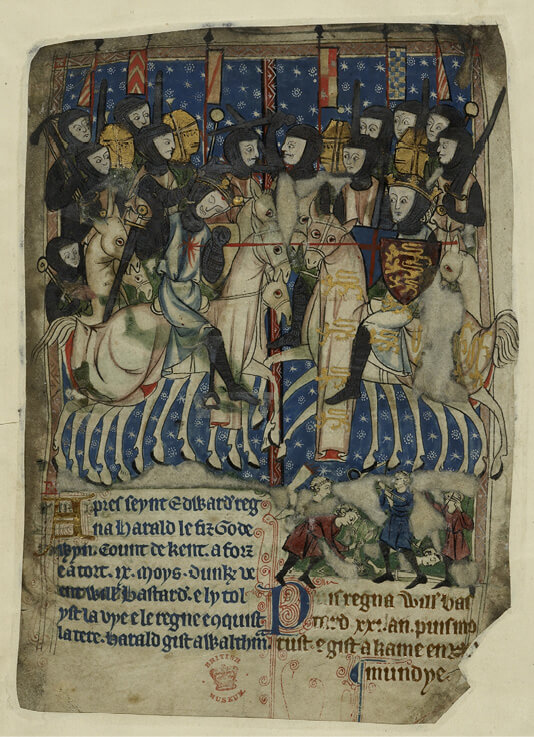 Apres seynt Edward reg
na Harald le fiz Gode
wyn. Count de kent. a forz
e a tort. ix. moys. dunk ve
ent will bastard. e ly tol
yst la vye e le regne en quist
la tere. harald gist a Waltham
Puis regna Will bas
tard xxi. an. puis mo
rust. e gist a kame en
mundye.
BRITISH
MUSEUM